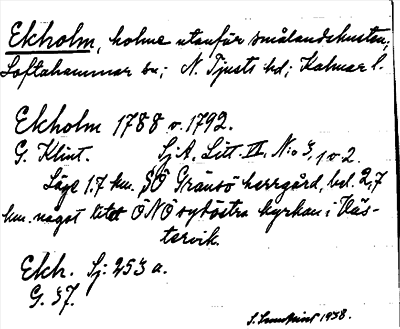 Ekholm, holme utanför smålandskusten;
Loftahammar sn; N. Tjusts hd; Kalmar l.
Ekholm 1788 o. 1792.
G. Klint. SjA. Litt. III, N:o 3, 1 o 2.
Läge 1.7 km. SÖ Gränsö herrgård, bel. 2,7
km. något litet ÖNÖ sydöstra kyrkan i Väs-
tervik.
Ekh. Sj: 253 a.
G. 37.
1938.